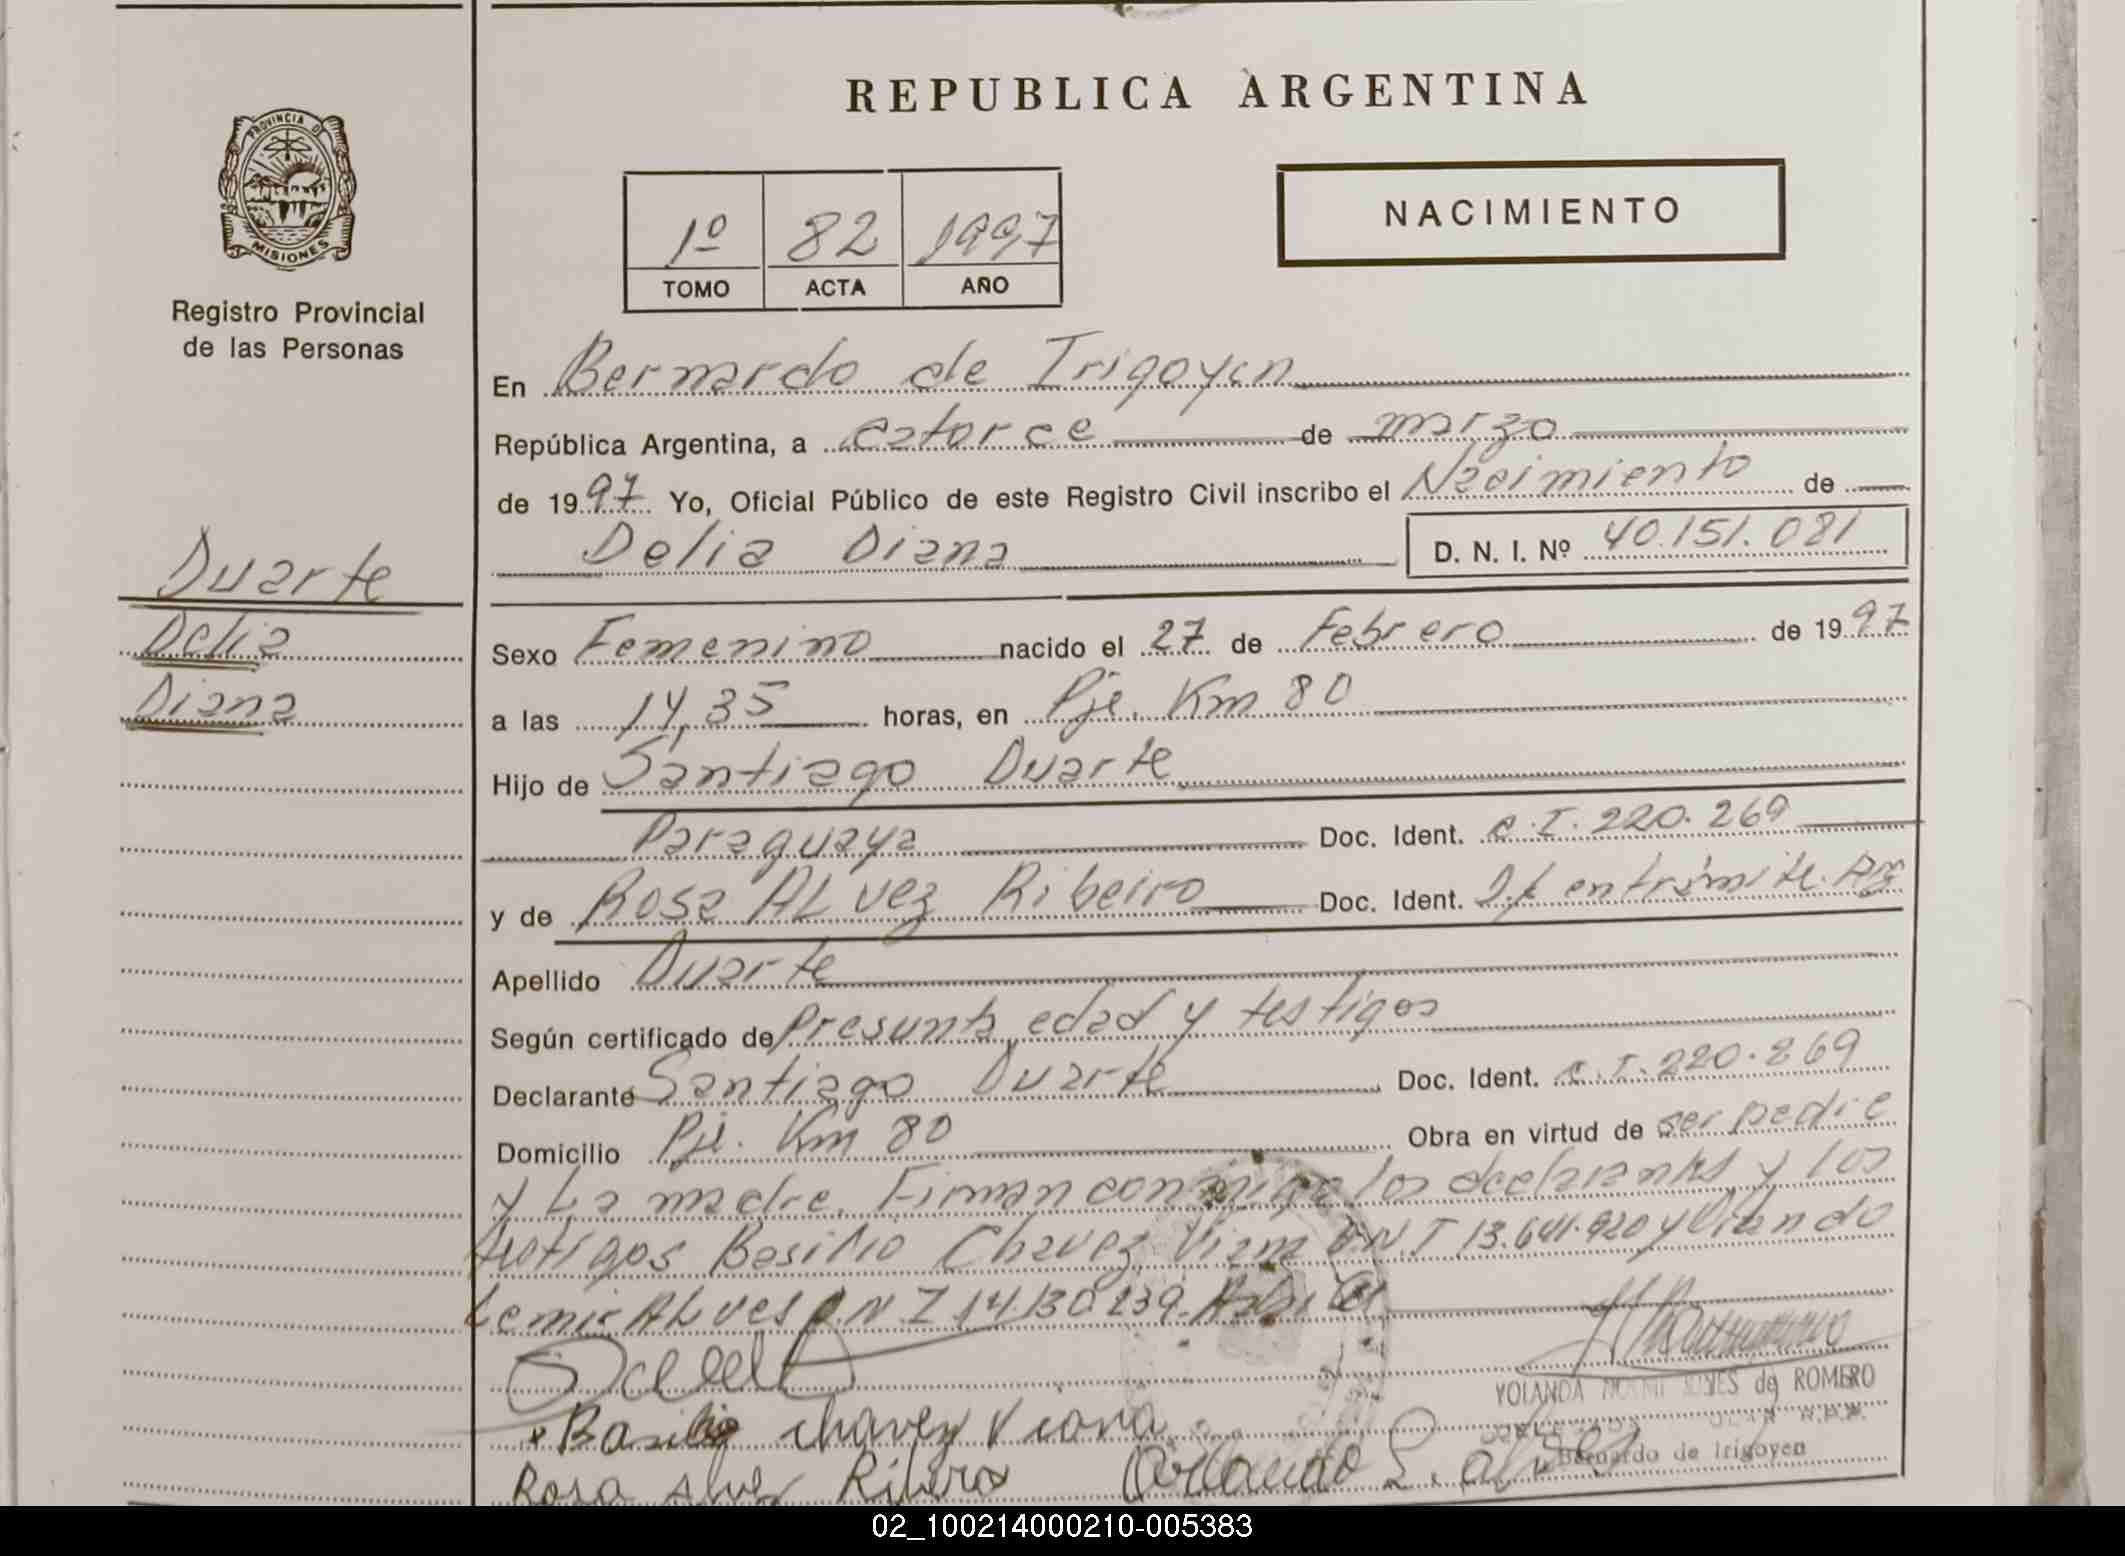 REPUBLICA ARGENTINA
PROVINCIA D
MISIONES
Registro Provincial
de las Personas
1º 82 1997
TOMO ACTA AÑO
NACIMIENTO
En Bernardo de Irigoyen
República Argentina, a catorce de marzo
de 1997 Yo, Oficial Público de este Registro Civil inscribo el Nacimiento de
Delia Diana D. N. I. Nº 40.151.081
Duarte
Delia
Diana
Sexo Femenino nacido el 27 de Febrero de 1997
a las 14,35 horas, en Pje. Km 80
Hijo de Santiago Duarte
Paraguaya Doc. Ident. C.I. 220.269
y de Rosa ALvez Ribeiro Doc. Ident. en trámite. Arg
Apellido Duarte
Según certificado de Presunta edad y testigos
Declarante Santiago Duarte Doc. Ident. C.I. 220.269
Domicilio Pje. Km 80 Obra en virtud de ser padre
y La madre. Firman conmigo los declarantes y los
testigos Basilio Chavez Viana D.N.I 13.641.920 y
Lemir ALves D.N.I 14.130.239.
Basilio chavez Viana
YOLANDA de ROMERO
Bernardo de Irigoyen
Rosa Alvez Ribero Orlando L.
02_100214000210-005383